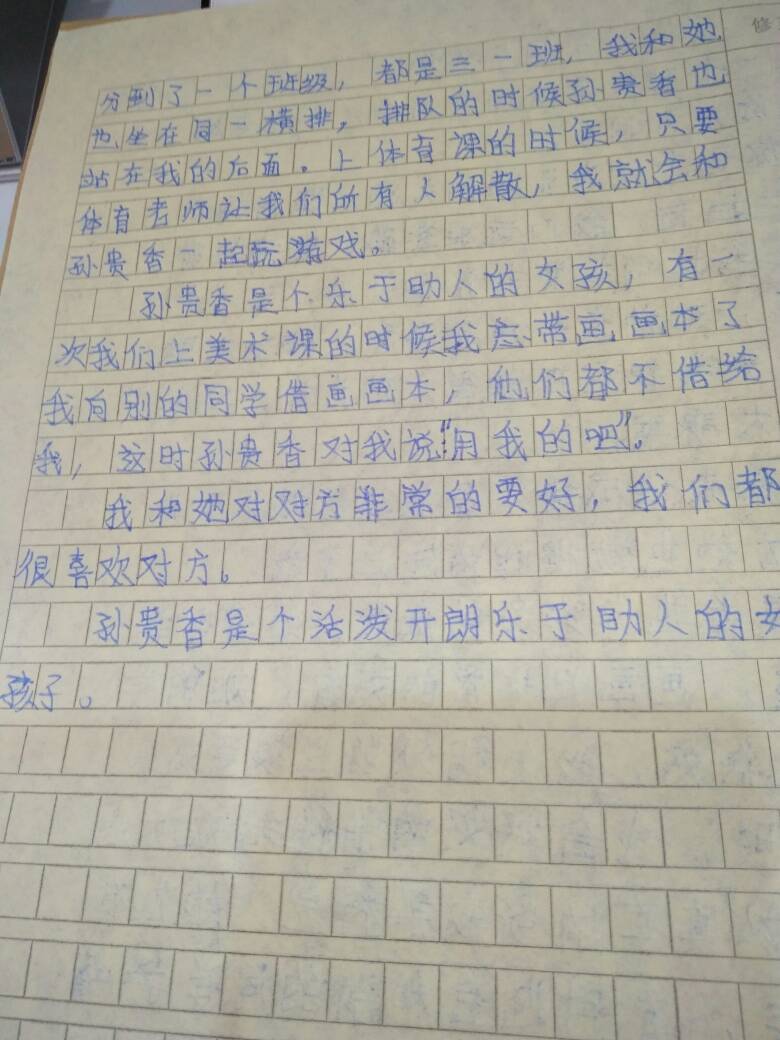 修
分到了一个班级，都是三一班，我和她
也坐在同一横排，排队的时候孙贵香也
站在我的后面。上体育课的时候，只要
体育老师让我们所有人解散，我就会和
孙贵香一起玩游戏。
孙贵香是个乐于助人的女孩，有一
次我们上美术课的时候我忘带画画本了
我向别的同学借画画本，他们都不借给
我，这时孙贵香对我说:"用我的吧"。
我和她对对方非常的要好，我们都
很喜欢对方。
孙贵香是个活泼开朗乐于助人的女
孩子。